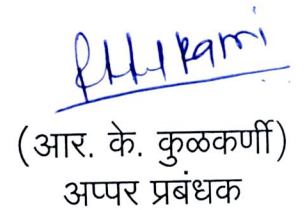 (आर. के. कुळकर्णी)
अप्पर प्रबंधक